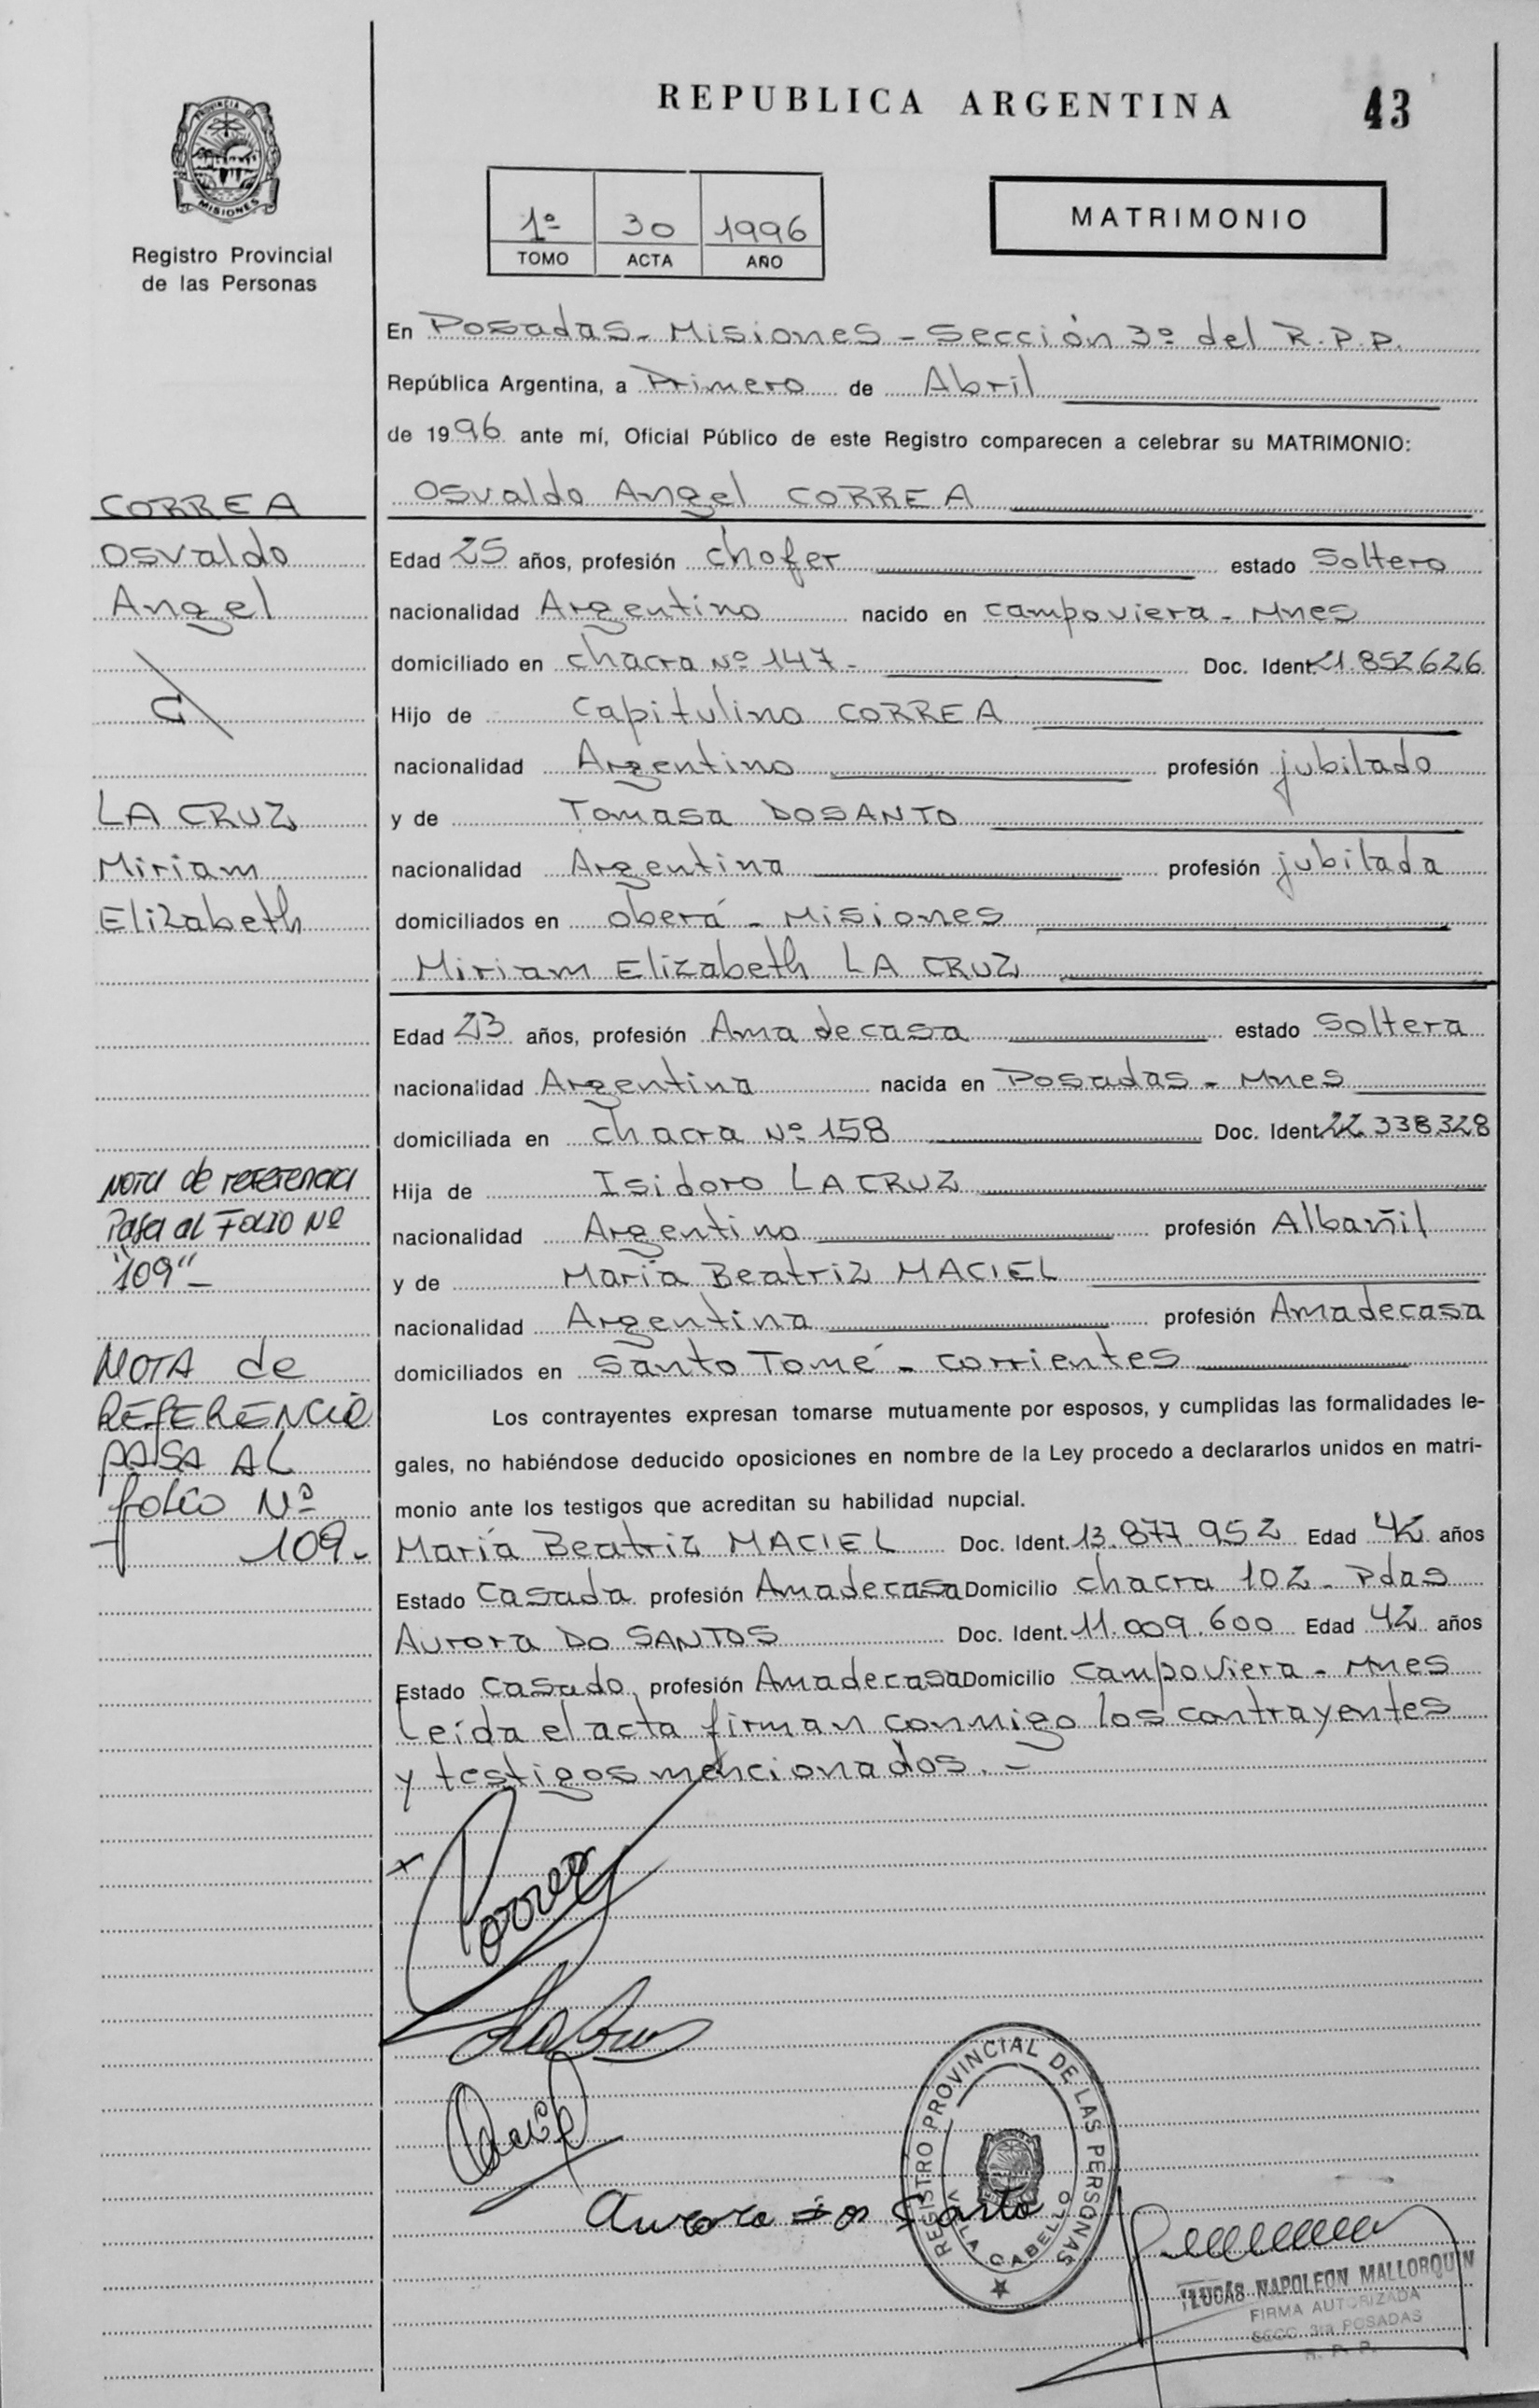 REPUBLICA ARGENTINA
43
PROVINCIA D
MISIONES
Registro Provincial
de las Personas
1º 30 1996
TOMO ACTA AÑO
MATRIMONIO
En Posadas - Misiones - Sección 3º del R.P.P.
República Argentina, a Primero de Abril
de 1996 ante mí, Oficial Público de este Registro comparecen a celebrar su MATRIMONIO:
CORREA
Osvaldo
Angel
C/
LA CRUZ
Miriam
Elizabeth
Nota de referencia
Pasa al Folio Nº
"109"-
NOTA de
REFERENCIA
PASA AL
folio Nº
109-
Osvaldo Angel CORREA
Edad 25 años, profesión chofer estado Soltero
nacionalidad Argentino nacido en campoviera - Mnes
domiciliado en chacra Nº 147- Doc. Ident. 21.852.626
Hijo de Capitulino CORREA
nacionalidad Argentino profesión jubilado
y de Tomasa DOSANTO
nacionalidad Argentina profesión jubilada
domiciliados en oberá - Misiones
Miriam Elizabeth LA CRUZ
Edad 23 años, profesión Ama de casa estado Soltera
nacionalidad Argentina nacida en Posadas - Mnes
domiciliada en chacra Nº 158 Doc. Ident. 22.338.328
Hija de Isidoro LA CRUZ
nacionalidad Argentino profesión Albañil
y de María Beatriz MACIEL
nacionalidad Argentina profesión Amadecasa
domiciliados en Santo Tomé - Corrientes
Los contrayentes expresan tomarse mutuamente por esposos, y cumplidas las formalidades le-
gales, no habiéndose deducido oposiciones en nombre de la Ley procedo a declararlos unidos en matri-
monio ante los testigos que acreditan su habilidad nupcial.
María Beatriz MACIEL Doc. Ident. 13.877.952 Edad 42 años
Estado Casada profesión Amadecasa Domicilio chacra 102 - Pdas
Aurora DO SANTOS Doc. Ident. 11.009.600 Edad 42 años
Estado Casado profesión Amadecasa Domicilio Campoviera - Mnes
Leída el acta firman conmigo los contrayentes
y testigos mencionados. -
x Correa
Aurora Dos Santo
REGISTRO PROVINCIAL DE LAS PERSONAS
VILLA CABELLO
LUCAS NAPOLEON MALLORQUIN
FIRMA AUTORIZADA
SECC. 3ra POSADAS
R. P. P.